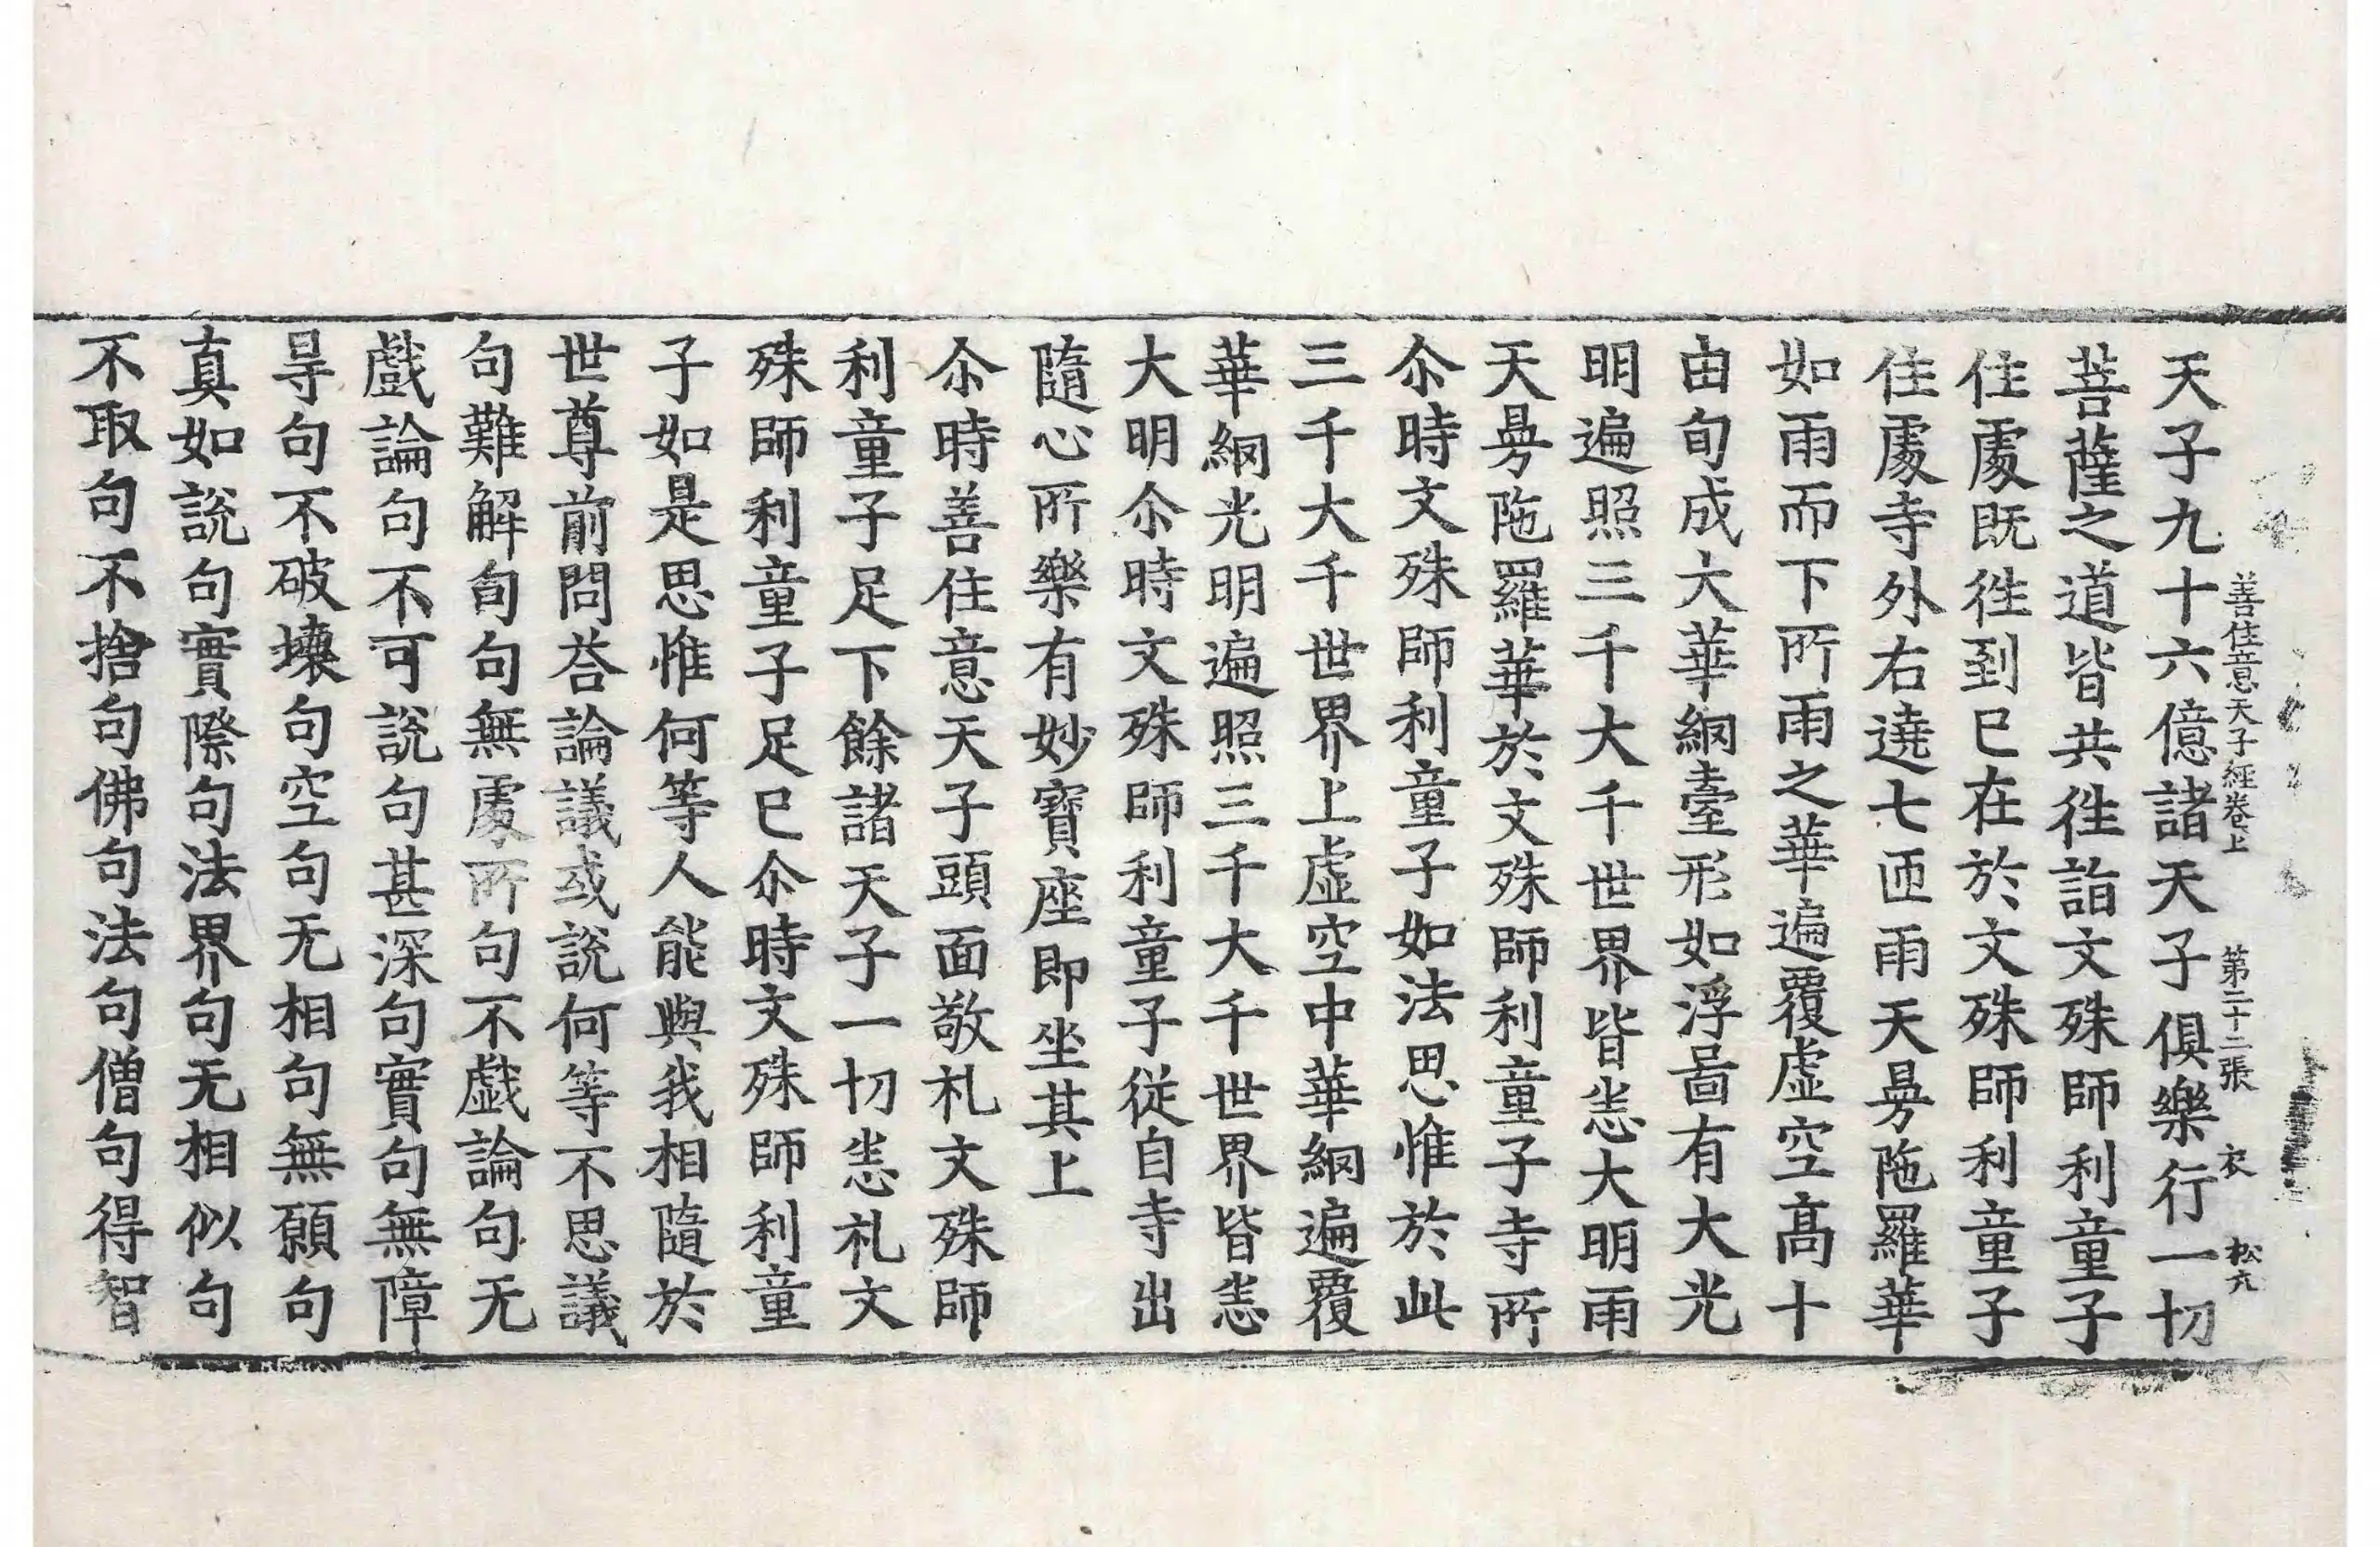 善住意天子經卷上　第二十二張　衣　松六
天子九十六億諸天子俱樂行一切
菩薩之道皆共徃詣文殊師利童子
住䖏既徃到已在於文殊師利童子
住䖏寺外右遶七匝雨天曼陁羅華
如雨而下所雨之華遍覆虛空高十
由旬成大華網臺形如浮啚有大光
明遍照三千大千世界皆悉大明雨
天曼陁羅華於文殊師利童子寺所
尒時文殊師利童子如法思惟於此
三千大千世界上虛空中華網遍覆
華網光明遍照三千大千世界皆悉
大明尒時文殊師利童子從自寺出
隨心所樂有妙寶座即坐其上
尒時善住意天子頭面敬礼文殊師
利童子足下餘諸天子一切悉礼文
殊師利童子足已尒時文殊師利童
子如是思惟何等人能與我相隨於
世尊前問荅論議或說何等不思議
句難解句句無䖏所句不戲論句无
戲論句不可說句甚深句實句無障
㝵句不破壞句空句无相句無願句
真如說句實際句法界句无相似句
不取句不捨句佛句法句僧句得智